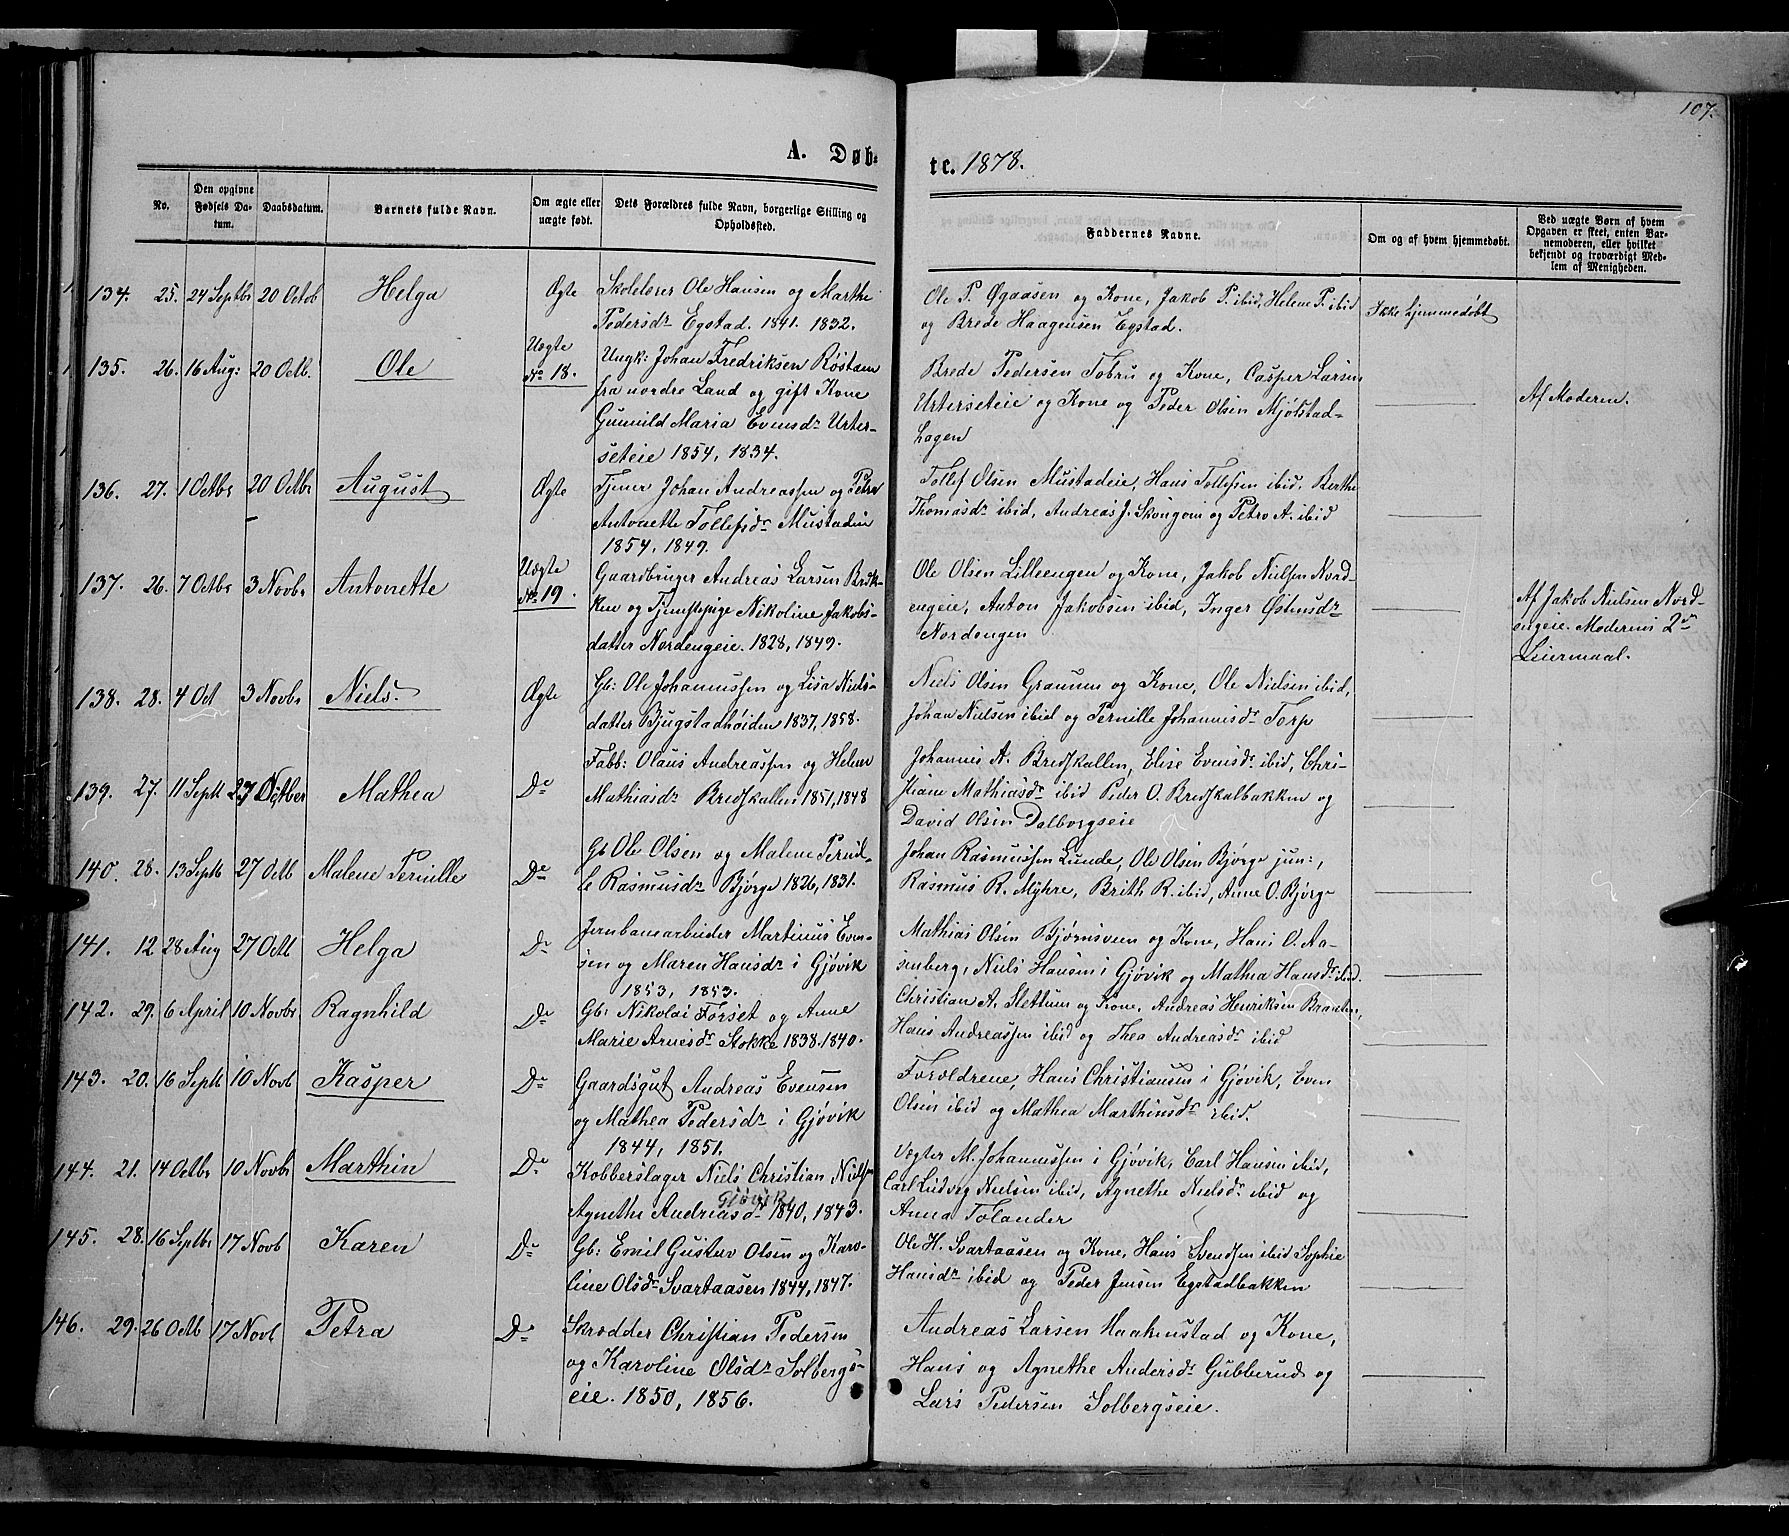 107.
A. Døb-
te. 1878.
No.
Den opgivne
Fødsels Da-
tum.
Daabsdatum.
Barnets fulde Navn.
Om ægte eller
uægte født.
Dets Forældres fulde Navn, borgerlige Stilling og
Opholdssted.
Faddernes Navne.
Om og af hvem hjemmedøbt.
Ved uægte Børn af hvem
Opgaven er skeet, enten Bar-
nemoderen, eller hvilket
bekjendt og troværdigt Med-
lem af Menigheden.
134. 25. 24 Septbr 20 Octob Helga Ægte
Skolelærer Ole Hansen og Marthe
Pedersdr Egstad. 1841. 1832.
Ole P. Øgaasen og Kone, Jakob P. ibid, Helene P. ibid
og Brede Haagensen Egstad.
Ikke hjemmedøbt
135. 26. 16 Aug: 20 Octb. Ole
Uægte
No 18.
Ungk: Johan Fredriksen Røstøen
fra nordre Land og gift Kone
Gunnild Maria Evensdr Urter-
seteie 1854, 1834.
Brede Pedersen Tobru og Kone, Casper Larsen
Urterseteie og Kone og Peder Olsen Mjølstad-
hagen
Af Moderen.
136. 27. 1 Octbr 20 Octbr August Ægte
Tjener Johan Andreassen og Petra
Antonette Tollefsdr Mustadeie
1854, 1849.
Tollef Olsen Mustadeie, Hans Tollefsen ibid. Berthe
Thomasdr ibid, Andreas J. Skongom og Petra A. ibid
137. 26. 7 Octbr 3 Novbr Antonette
Uægte
No 19.
Gaardbruger Andreas Larsen Bræk-
ken og Tjenestepige Nikoline Jakobs-
datter Nordengeie. 1828, 1849.
Ole Olsen Lilleengen og Kone, Jakob Nielsen Nord-
engeie, Anton Jakobsen ibid, Inger Østensdr
Nordengen
Af Jakob Nielsen Nord-
engeie. Moderens 2det
Leiermaal.
138. 28. 4 Oct 3 Novbr Niels. Ægte
Gb: Ole Johannessen og Lisa Niels-
datter Bjugstadhøiden 1837, 1858.
Niels Olsen Graunm og Kone, Ole Nielsen ibid,
Johan Nielsen ibid og Pernille Johannisdr Torp
139. 27. 11 Septb 27 Octber Mathea Do
Fabb: Olaus Andreassen og Helene
Mathiasdr Bredskallen 1851, 1848
Johannes A. Bredskallen, Elise Evensdr ibid, Chri-
stiane Mathiasdr ibid Peder O. Bredskalbakken og
David Olsen Dalborgseie
140. 28. 13 Septb 27 Octb Malene Pernille Do
Gb Ole Olsen og Malene Pernil-
le Rasmusdr Bjørge 1826, 1831.
Johan Rasmussen Lunde, Ole Olsen Bjørge jun:,
Rasmus R. Myhre, Brith R. ibid, Anne O. Bjørge
141. 12 28 Aug 27 Octb Helga Do
Jernbanearbeider Martinus Even-
sen og Maren Hansdr i Gjøvik
1853, 1853.
Mathias Olsen Bjørnsveen og Kone, Hans O. Aa-
senberg, Niels Hansen i Gjøvik og Mathea Hansdr ibid.
142. 29. 6 April 10 Novbr Ragnhild Do
Gb: Nikolai Forset og Anne
Marie Arnesdr Stokke 1838. 1840.
Christian A. Slettum og Kone, Andreas Henriksen Braaten,
Hans Andreassen ibid og Thea Andreasdr ibid
143. 20. 16 Septb 10 Novb Kasper Do
Gaardsgut Andreas Evensen
og Mathea Pedersdr i Gjøvik
1844, 1851.
Forældrene, Hans Christiansen i Gjøvik, Even
Olsen ibid og Mathea Marthinsdr ibid.
144. 21. 14 Octbr 10 Novbr Marthin Do
Kobberslager Niels Christian Nielsen
Gjøvik
Agnethe Andreasdr 1840, 1843.
Vegter M. Johannessen i Gjøvik, Carl Hansen ibid,
Carl Ludvig Nielsen ibid, Agnethe Nielsdr ibid og
Anna Tolander
145. 28. 16 Septbr 17 Novb Karen Do
Gb: Emil Gustav Olsen og Karo-
line Olsdr Svartaasen 1844, 1847.
Ole H. Svartaasen og Kone, Hans Svendsen ibid Sophie
Hansdr ibid og Peder Jensen Egstadbakken
146. 29. 26 Octb 17 Novb Petra Do
Skrædder Christian Pedersen
og Karoline Olsdr Solbergs-
eie. 1850, 1856.
Andreas Larsen Haakenstad og Kone,
Hans og Agnethe Andersdr Gubberud og
Lars Pedersen Solbergseie.